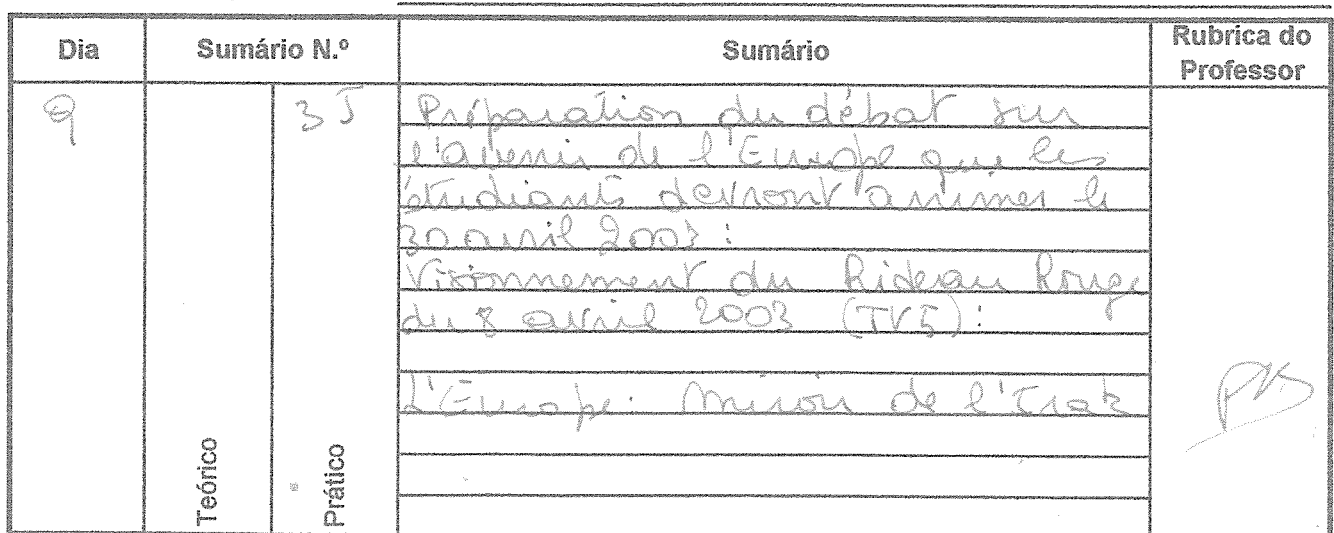 Dia Sumário N.º Sumário Rubrica do Professor
9
Préparation du débat sur
l'avenir de l'Europe que les
étudiants devront animer le
30 avril 2003 :
Visionnement du Rideau Rouge
du 8 avril 2003 (TV5) :
L'Europe. Miroir de l'Irak
Teórico
Prático